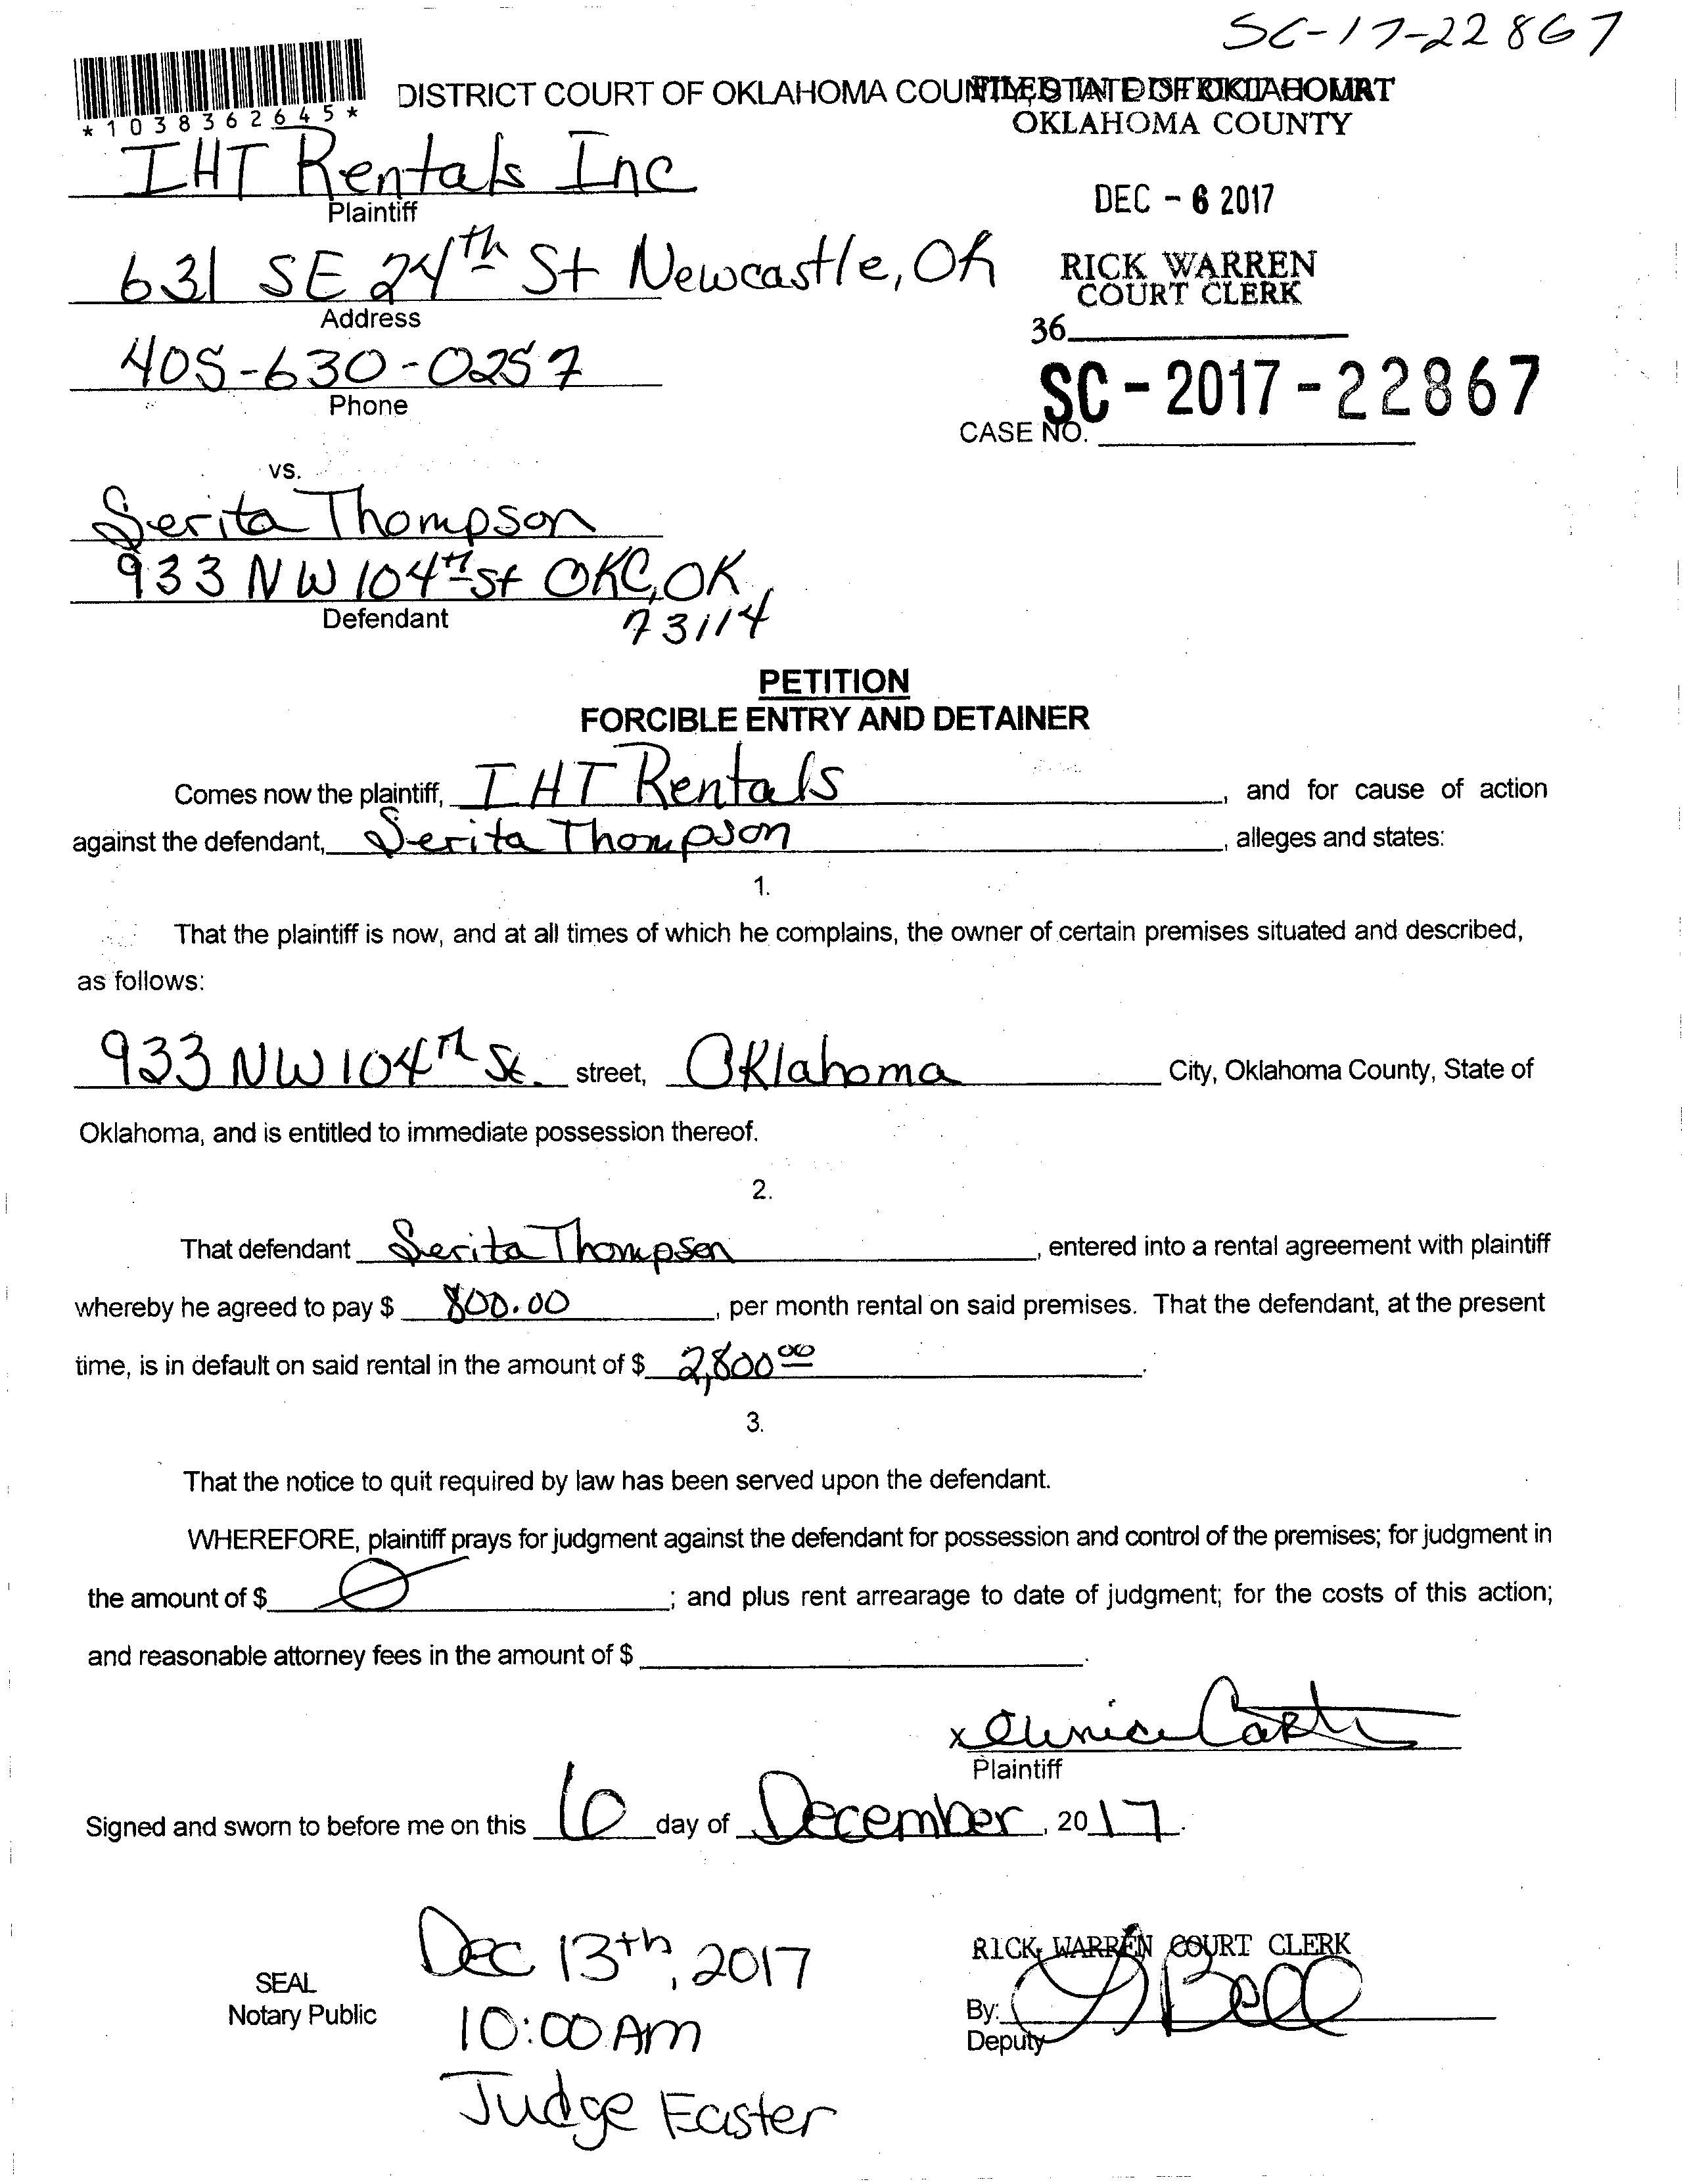 SC-17-22867
*1038362645*
DISTRICT COURT OF OKLAHOMA COUNTY, STATE OF OKLAHOMA
FILED IN DISTRICT COURT
OKLAHOMA COUNTY
IHT Rentals Inc
Plaintiff
DEC - 6 2017
631 SE 24th St Newcastle, Ok
Address
RICK WARREN
COURT CLERK
36
405-630-0257
Phone
SC - 2017 - 22867
CASE NO.
vs.
Serita Thompson
933 NW 104th St OKC, OK
73114
Defendant
PETITION
FORCIBLE ENTRY AND DETAINER
Comes now the plaintiff, IHT Rentals, and for cause of action
against the defendant, Serita Thompson, alleges and states:
1.
That the plaintiff is now, and at all times of which he complains, the owner of certain premises situated and described,
as follows:
933 NW 104th St. street, Oklahoma City, Oklahoma County, State of
Oklahoma, and is entitled to immediate possession thereof.
2.
That defendant Serita Thompson, entered into a rental agreement with plaintiff
whereby he agreed to pay $ 800.00, per month rental on said premises. That the defendant, at the present
time, is in default on said rental in the amount of $ 2,800 00.
3.
That the notice to quit required by law has been served upon the defendant.
WHEREFORE, plaintiff prays for judgment against the defendant for possession and control of the premises; for judgment in
the amount of $ Ø; and plus rent arrearage to date of judgment; for the costs of this action;
and reasonable attorney fees in the amount of $ .
x
Plaintiff
Signed and sworn to before me on this 6 day of December, 2017.
SEAL
Notary Public
Dec 13th, 2017
10:00 AM
Judge Easter
RICK WARREN COURT CLERK
By: Bell
Deputy